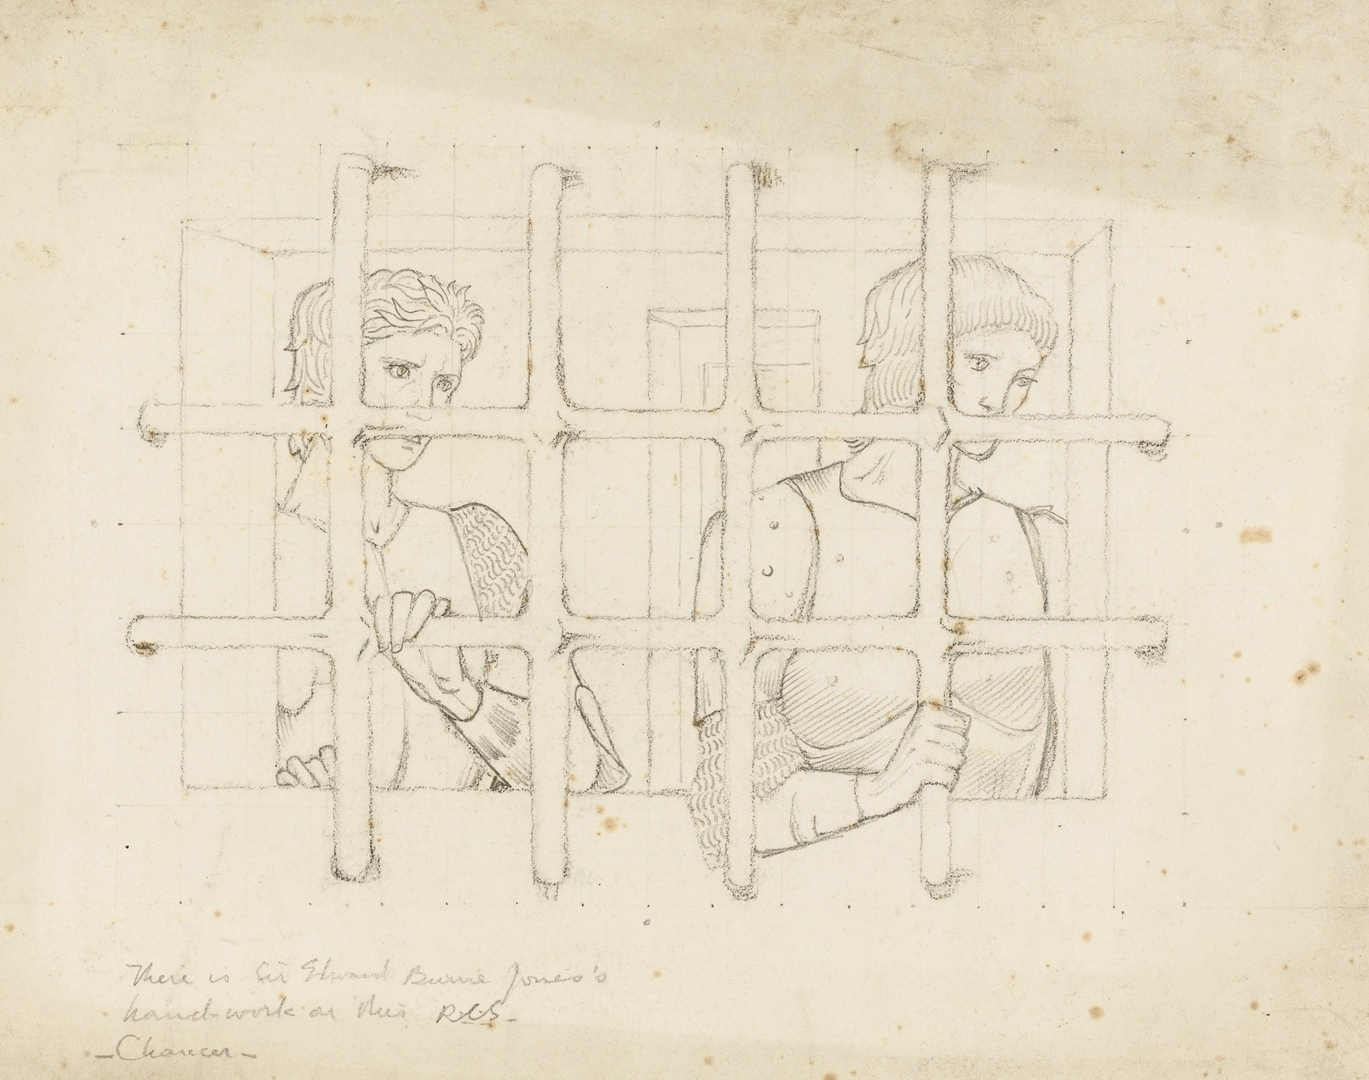 There is Sir Edward Burne Jones's
hand-work on this R.C.S.
- Chaucer -